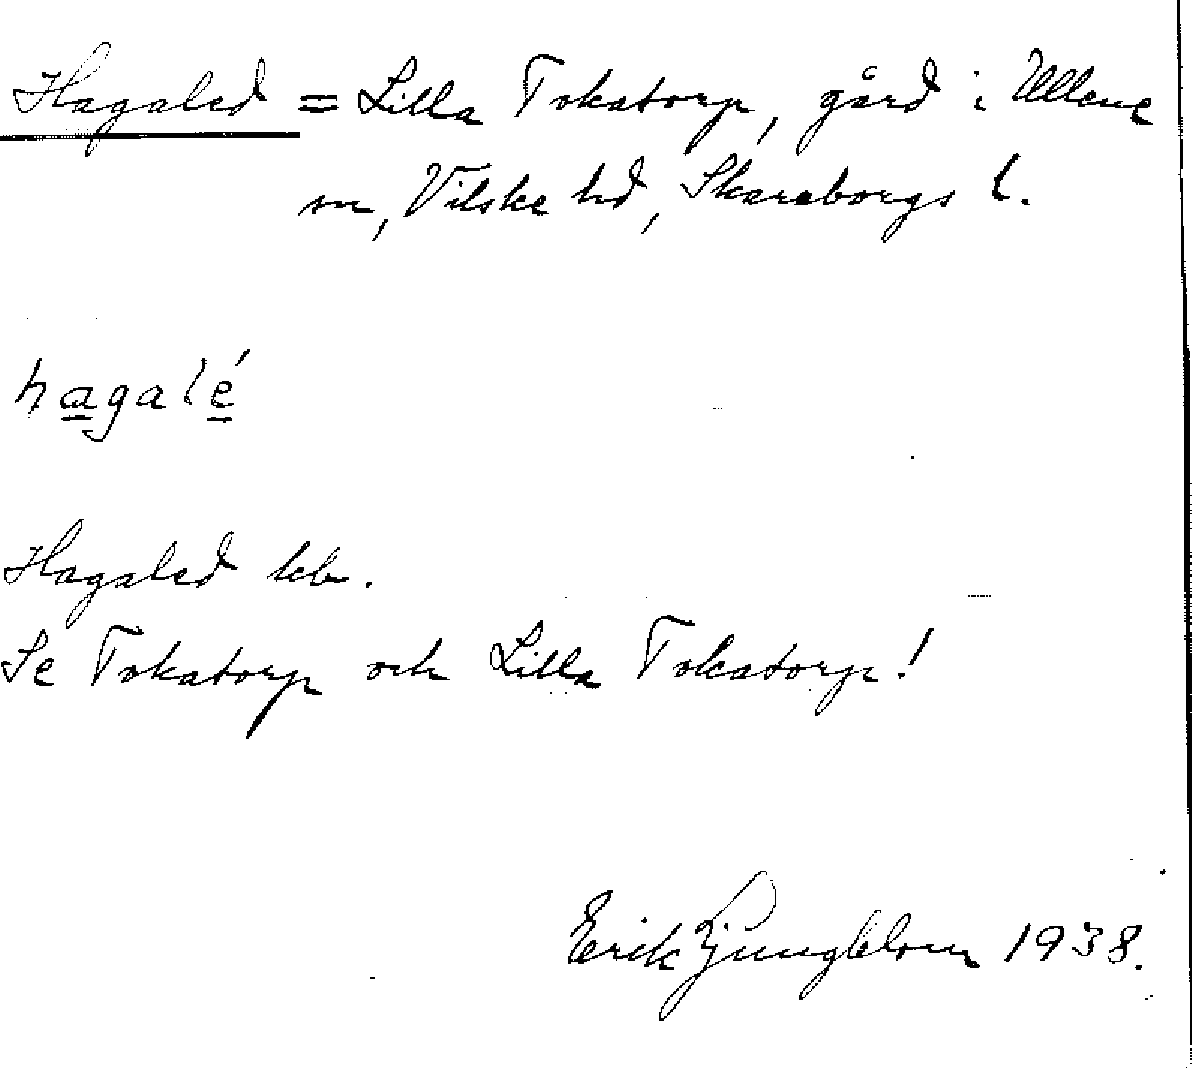 Hagaled = Lilla Tokatorp, gård i Ullene
sn, Vilske hd, Skaraborgs l.
hagalé
Hagaled kb.
Se Tokatorp och Lilla Tokatorp!
Erik Ljungblom 1938.